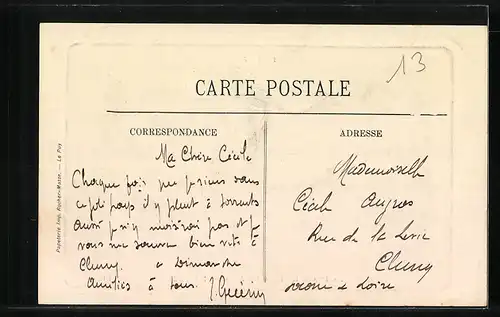 13
CARTE POSTALE
CORRESPONDANCE
Ma Chère Cécile
Chaque fois que je viens dans
ce joli pays il y pleut à torrents
aussi je n'y moisirai pas et je
vous me sauve bien vite à
Cluny. à Dimanche
Amitiés à tous. J. Guérin
ADRESSE
Mademoiselle
Cécile Augros
Rue de la
Cluny
Saone et Loire
Papeterie Imp. - Le Puy